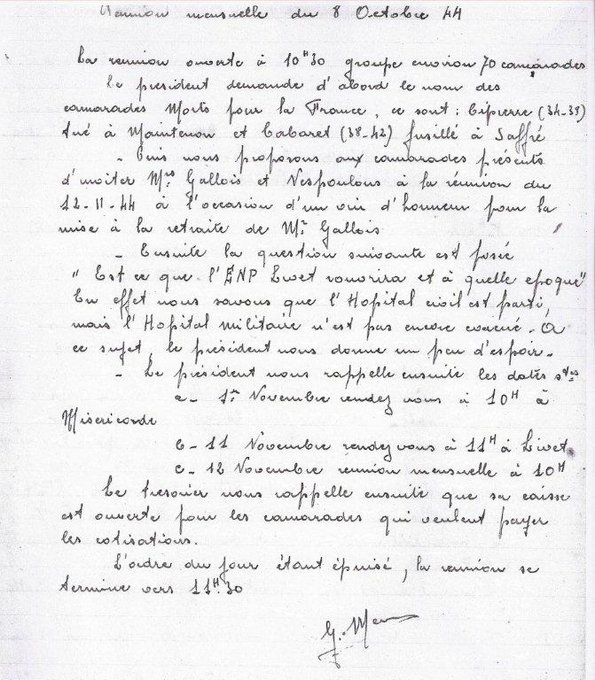 Réunion mensuelle du 8 Octobre 44
La reunion ouverte à 10H30 groupe environ 70 camarades
Le president demande d'abord le nom des
camarades Morts pour la France, ce sont : Lépierre (34-38)
tué à Maintenon et Cabaret (38-42) fusillé à Saffré
- Puis nous proposons aux camarades présents
d'inviter Mrs Gallois et Vespoulous à la réunion du
12-11-44 à l'occasion d'un vin d'honneur pour la
mise à la retraite de Mr Gallois
- Ensuite la question suivante est posée
" Est ce que l'ENP Livet rouvrira et à quelle epoque"
En effet nous savons que l'Hopital civil est parti,
mais l'Hopital militaire n'est pas encore évacué. A
ce sujet, le président nous donne un peu d'espoir.
- Le président nous rappelle ensuite les dates stes
a - 1er Novembre rendez vous à 10H à
Misericorde
b - 11 Novembre rendez vous à 11H à Livet
c - 12 Novembre reunion mensuelle à 10H
Le tresorier nous rappelle ensuite que sa caisse
est ouverte pour les camarades qui veulent payer
les cotisations.
L'ordre du jour étant épuisé, la reunion se
termine vers 11H30